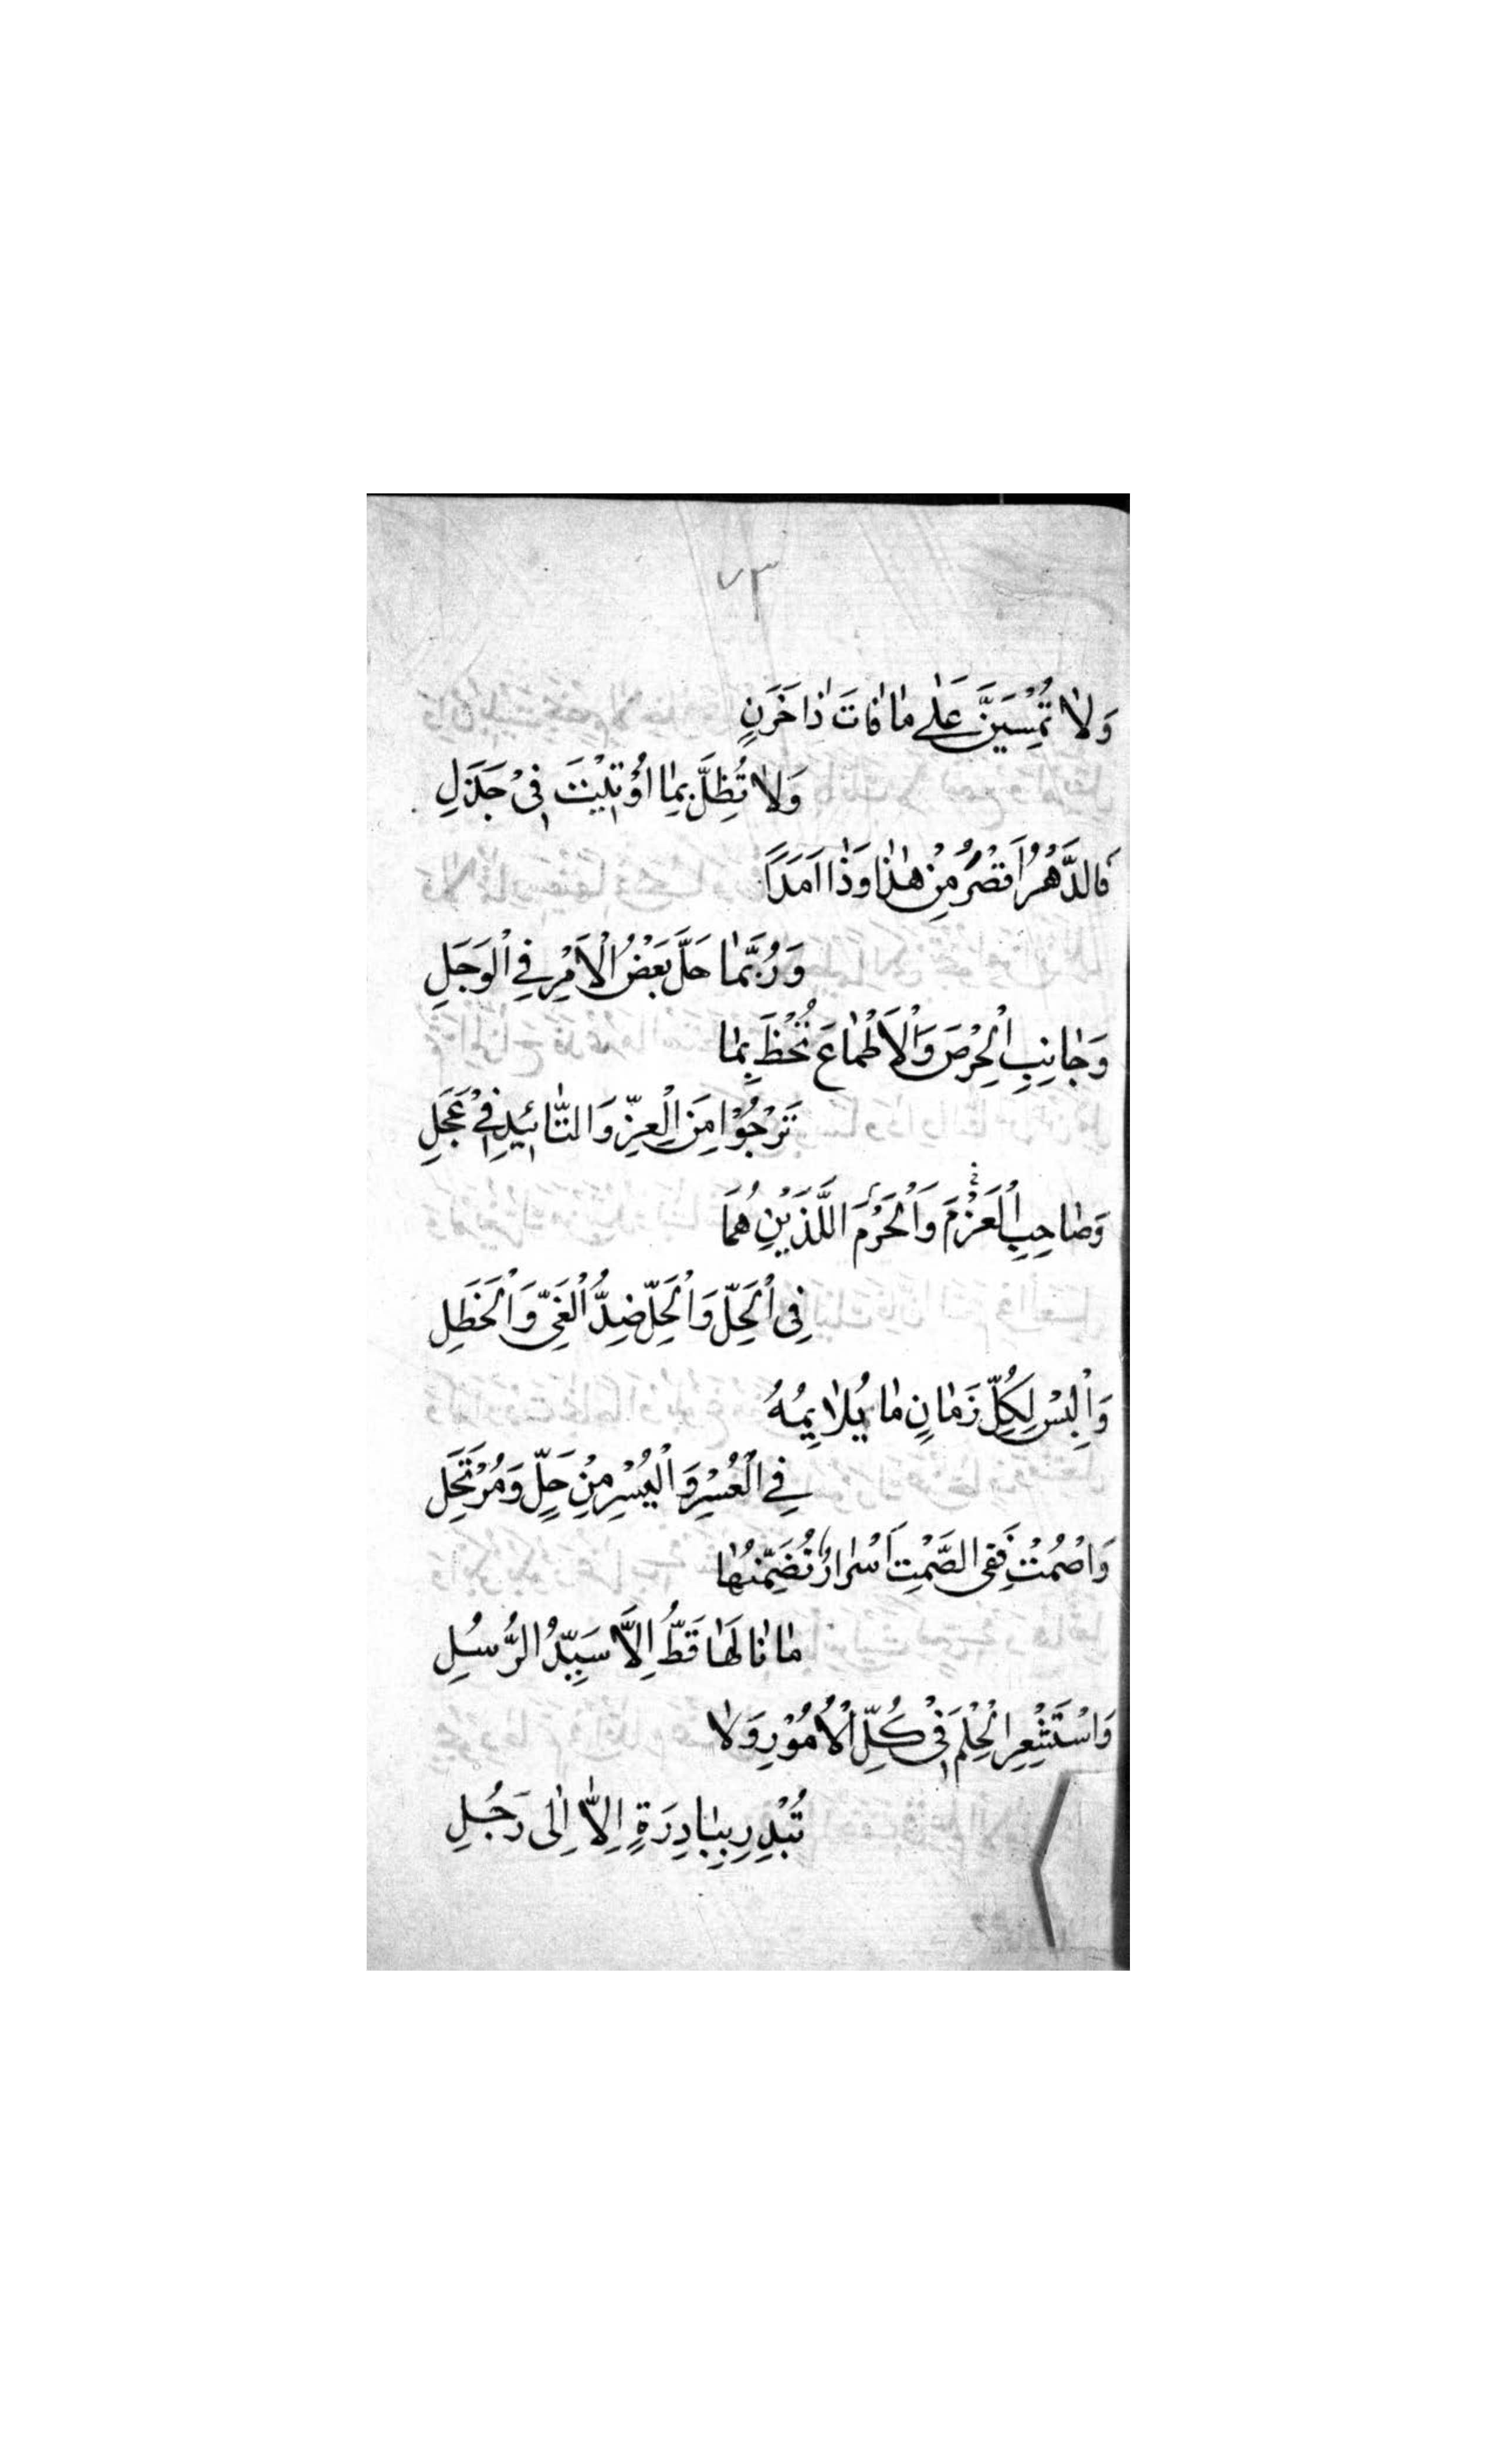 ٧٣
وَلاٰ تُمْسِيَنَّ عَلٰے مٰا فٰاتَ ذٰا خَزَنٍ
وَلاٰ تُظِلَّ بِمٰا اُوْتِيْتَ فِیْ جَذَلِ
فَالدَّهْرُ اَقْصَرُ مِنْ هٰذٰا وَذٰا اَمَدًا
وَرُبَّمٰا حَلَّ بَعْضُ الْاَمْرِ فِي الْوَجَلِ
وَجٰانِبِ الْحِرْصَ وَالْاَطْمٰاعَ تُحْظَ بِمٰا
تَرْجُوْا مِنَ الْعِزِّ وَالتّٰائِيدِ فِیْ عَجَلِ
وَصٰاحِبِ الْعَزْمَ وَالْحَزْمَ اللَّذَيْنِ هُمَا
فِی الْحِلِّ وَالْحِلِّ ضِدُّ الْغَیِّ وَالْخَطَلِ
وَالْبِسْ لِكُلِّ زَمٰانٍ مٰا يُلاٰيِمُهُ
فِے الْعُسْرِ وَالْيُسْرِ مِنْ حَلٍّ وَمُرْتَحَلِ
وَاصْمُتْ فَفِی الصَّمْتِ اَسْرٰارٌ تُضَمِّنُهٰا
مٰا نٰالَهٰا قَطُّ اِلَّا سَيِّدُ الرُّسُلِ
وَاسْتَشْعِرِ الْحِلْمَ فِیْ كُلِّ الْاُمُوْرِ وَلاٰ
تُبْدِرِ بِبٰادِرَةٍ اِلاّٰ اِلٰی رَجُلِ